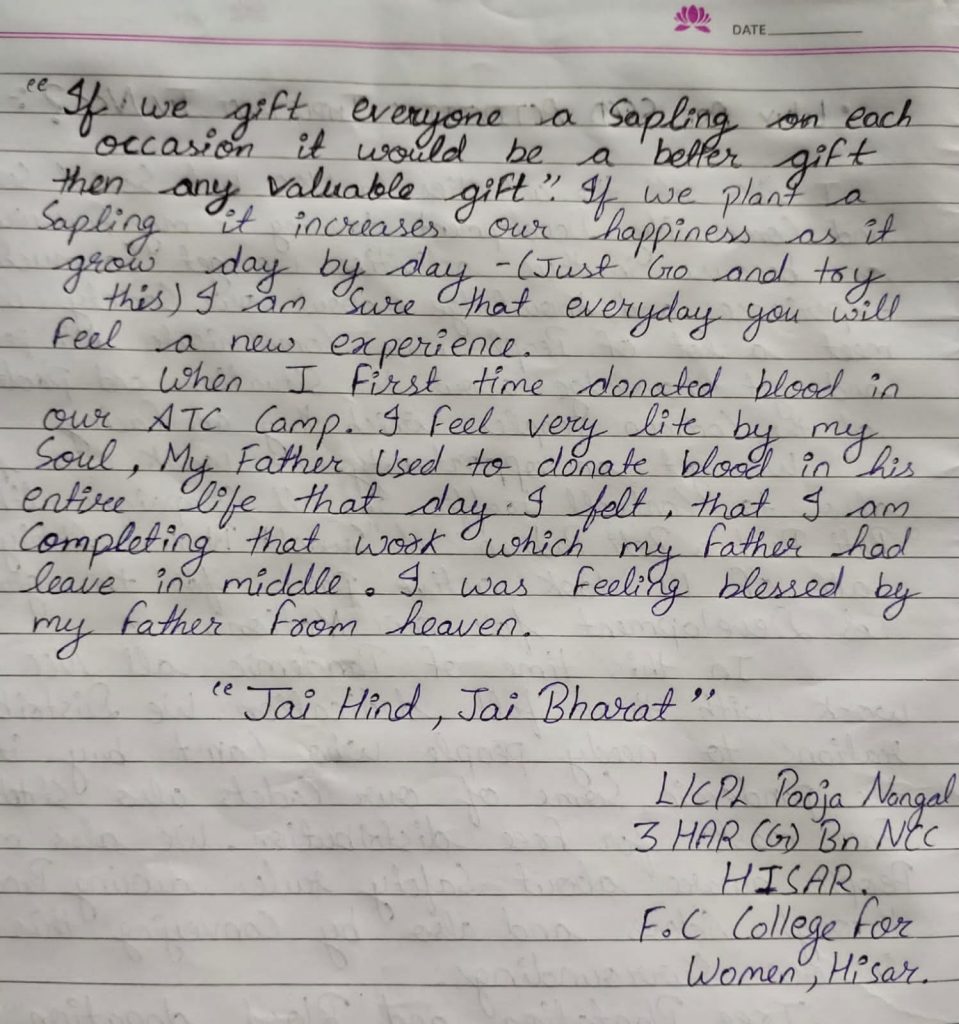 DATE
"If we gift everyone a Sapling on each
occasion it would be a better gift
then any valuable gift". If we plant a
Sapling it increases our happiness as it
grow day by day - (Just Go and try
this) I am Sure that everyday you will
feel a new experience.
When I First time donated blood in
our ATC Camp. I feel very lite by my
Soul, My Father Used to donate blood in his
entire life that day. I felt, that I am
Completing that work which my father had
leave in middle. I was feeling blessed by
my father from heaven.
"Jai Hind, Jai Bharat"
L/CPL Pooja Nongal
3 HAR (G) Bn NCC
HISAR.
F.C College for
Women, Hisar.